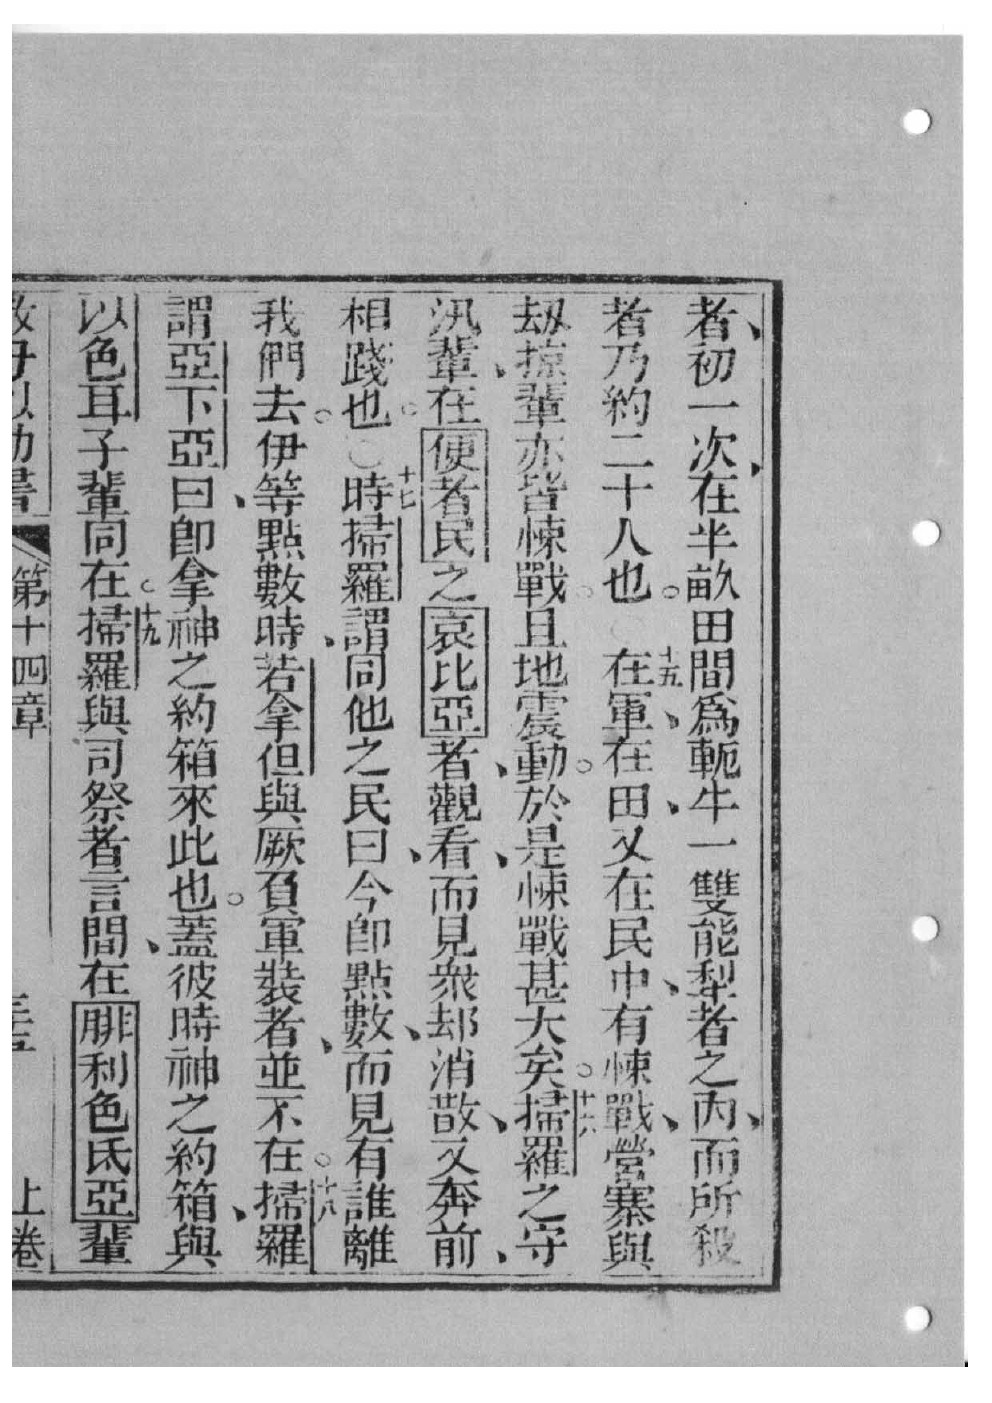 者、初一次、在半畝田間爲軛牛一雙能犁者之內、而所殺
者乃約二十人也。○十五在軍、在田、又在民中、有悚戰、營寨與
刼掠輩亦皆悚戰。且地震動。於是悚戰甚大矣。十六掃羅之守
汛輩、在便者民之哀比亞者、觀看、而見衆却消散、又奔前、
相踐也。○十七時掃羅謂同他之民曰、今卽點數、而見有誰離
我們去。伊等點數時、若拿但與厥負軍裝者、並不在。十八掃羅
謂亞下亞曰、卽拿神之約箱來此也。蓋彼時神之約箱、與
以色耳子輩同在。十九掃羅與司祭者言間、在腓利色氐亞輩
第十四章
上卷